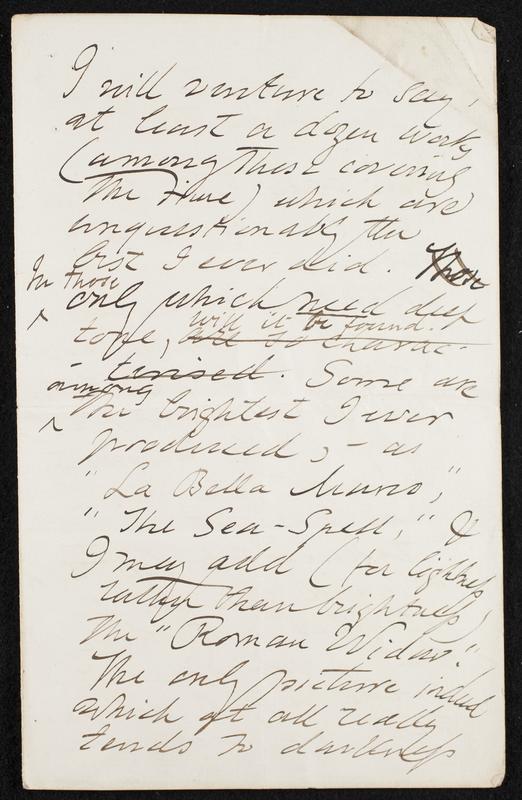 I will venture to say,
at least a dozen works
(among these covering
the time) which are
unquestionably the
best I ever did. These
In those
only which need deep
will it be found.
tone, are so charac-
terised. Some are
among
the brightest I ever
produced, – as
"La Bella Mano,"
"The Sea-Spell," &
I may add (for lightness
rather than brightness)
the "Roman Widow."
The only picture indeed
which at all really
tends to darkness